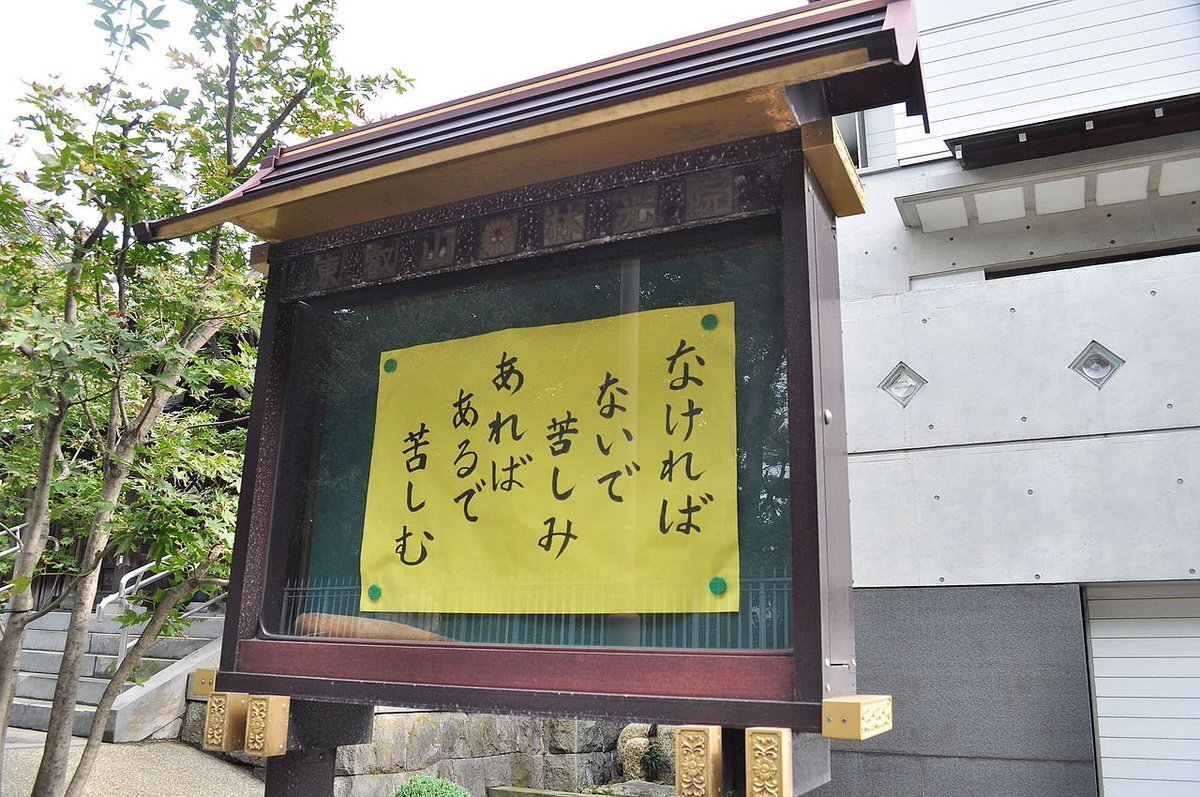 東叡山 林光院
なければ
ないで
苦しみ
あれば
あるで
苦しむ